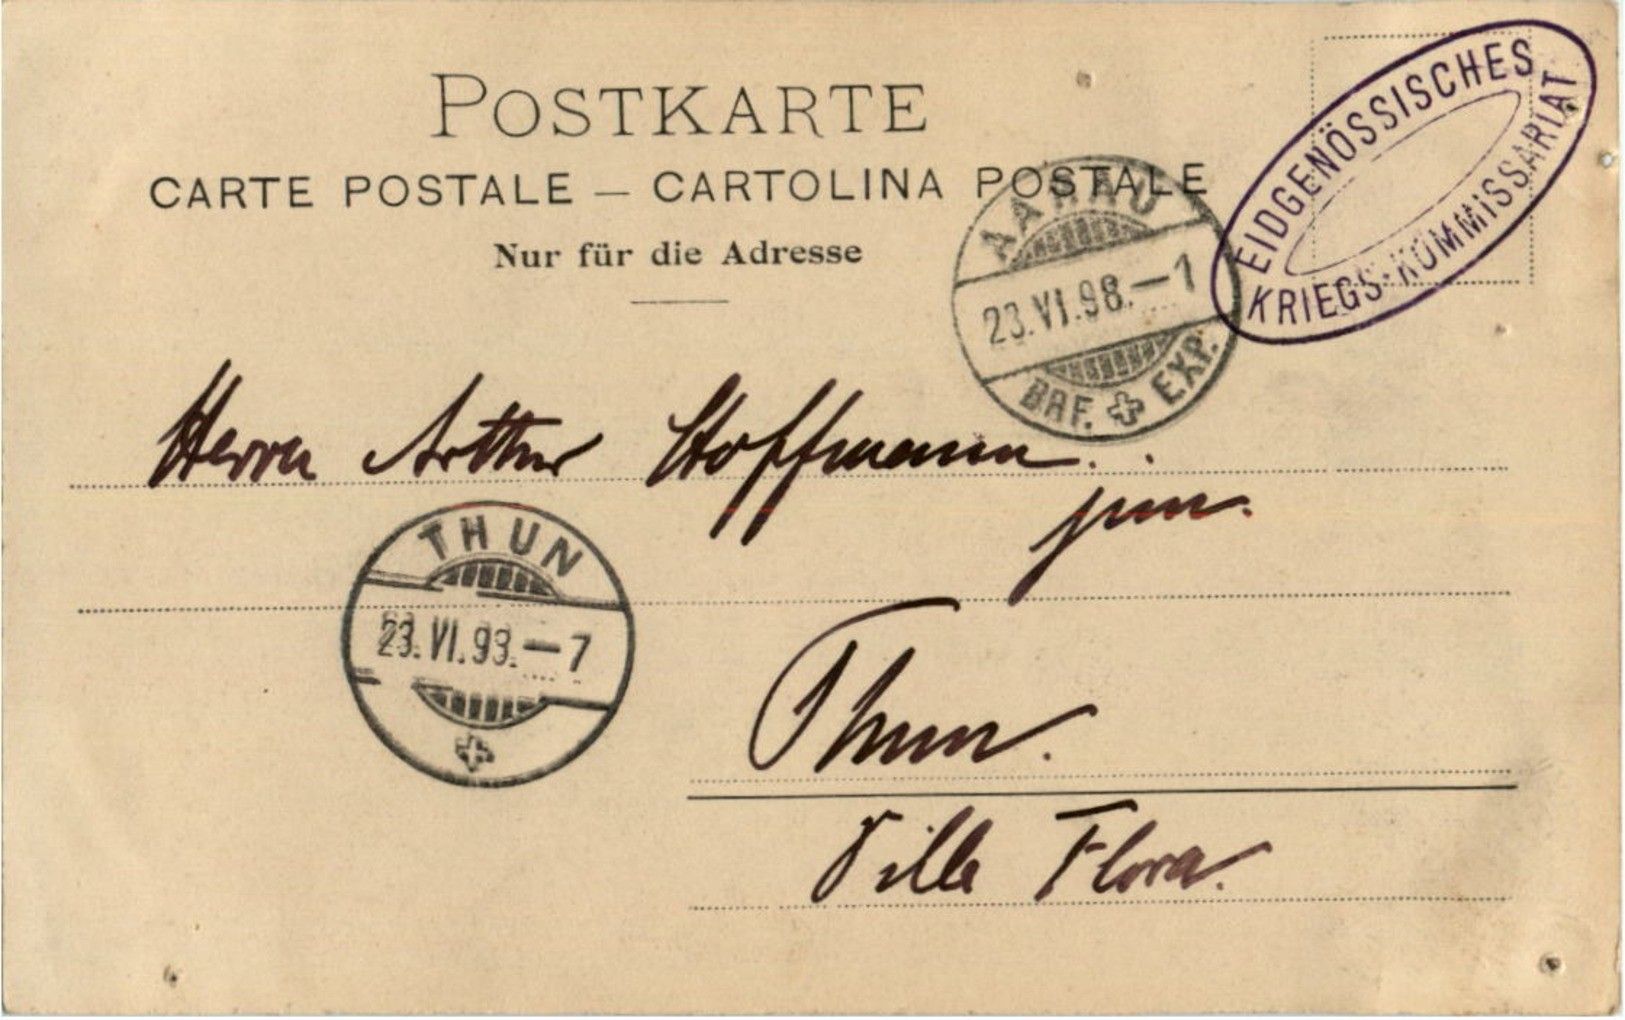 POSTKARTE
CARTE POSTALE — CARTOLINA POSTALE
Nur für die Adresse
EIDGENÖSSISCHES
KRIEGS-KOMMISSARIAT
AARAU
23.VI.98.—1
BRF. EXP.
Herrn Arthur Hoffmann.
jun.
THUN
23.VI.98.—7
Thun.
Villa Flora.